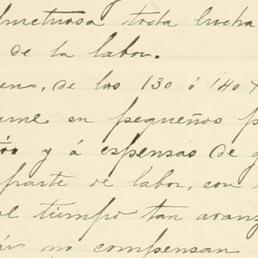 fructuosa toda lucha
de la labor.
en, de los 130 ó 140
en pequeños
y á espensas de
parte de labor, son
tiempo tan avanz
no compensan